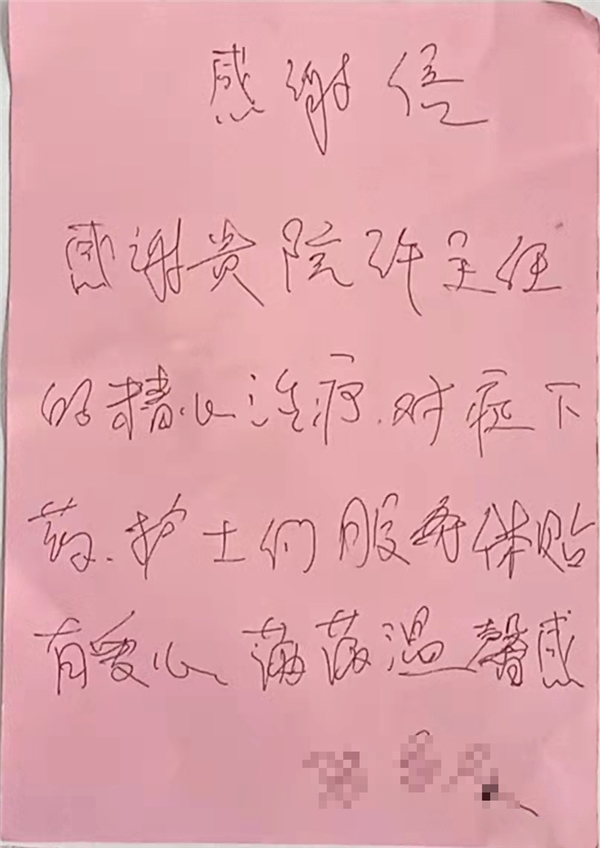 感谢信
感谢贵院许主任
的精心治疗.对症下
药、护士们服务体贴
有爱心 满满温馨感